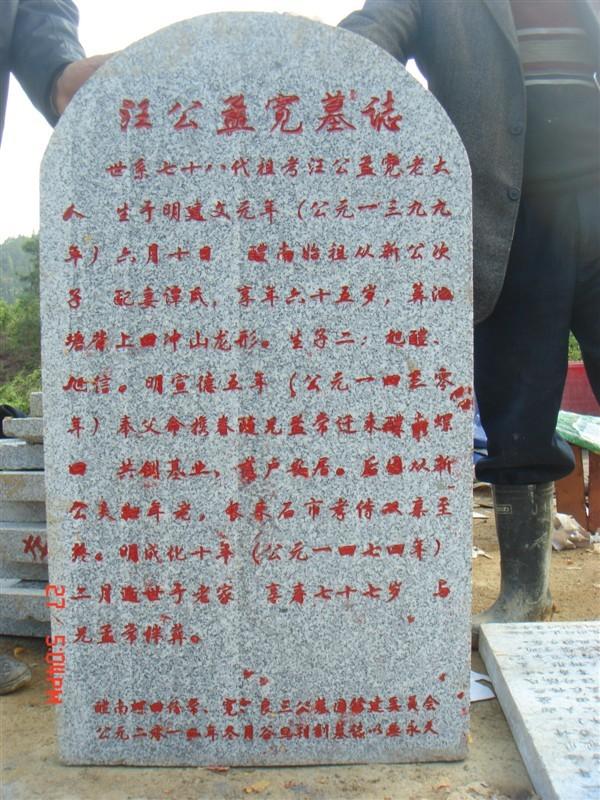 汪公孟宽墓誌
世系七十八代祖考汪公孟宽老大
人 生于明建文元年（公元一三九九
年）六月十日 醴南始祖从新公次
子 配妻谭氏，享年六十五岁，葬油
塘背上田冲山龙形。生子二：旭醴、
旭信。明宣德五年（公元一四三零
年）奉父命携眷随兄孟常迁来醴南螺
田 共创基业，落户安居。后因从新
公夫妇年老，复来石市孝侍双亲至
终。明成化十年（公元一四七四年）
二月逝世于老家 享寿七十七岁 与
兄孟常祥葬。
醴南螺田信常、宽、良三公墓园修建委员会
公元二零一 年冬月谷旦刊制墓铭以垂永久
27 5:04PM